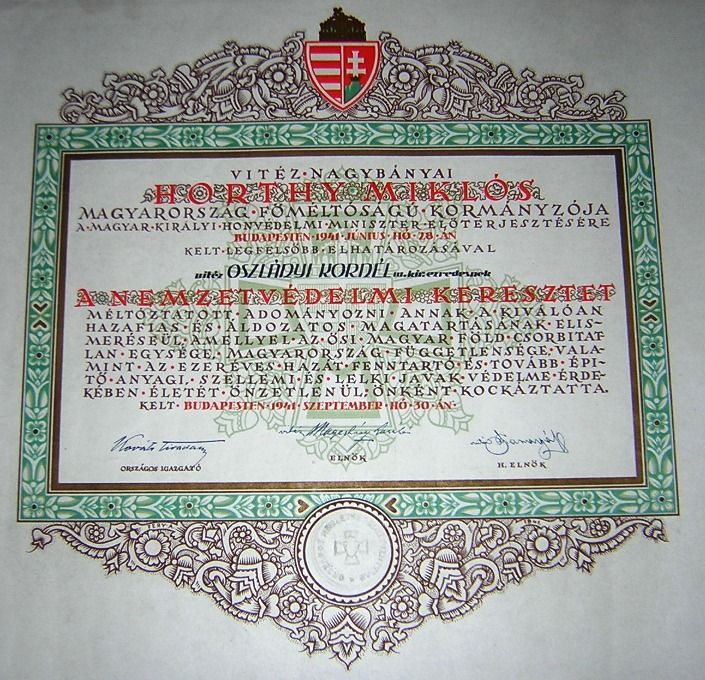 VITÉZ·NAGYBÁNYAI
HORTHY MIKLÓS
MAGYARORSZÁG·FŐMÉLTÓSÁGÚ·KORMÁNYZÓJA
A·MAGYAR·KIRÁLYI·HONVÉDELMI·MINISZTER·ELŐTERJESZTÉSÉRE
BUDAPESTEN·1941·JÚNIUS·HÓ·28·ÁN
KELT·LEGFELSŐBB·ELHATÁROZÁSÁVAL
vitéz OSZLÁNYI KORNÉL m.kir.ezredesnek
A NEMZETVÉDELMI KERESZTET
MÉLTÓZTATOTT·ADOMÁNYOZNI·ANNAK·A·KIVÁLÓAN
HAZAFIAS·ÉS·ÁLDOZATOS·MAGATARTÁSÁNAK·ELIS-
MERÉSEÜL·AMELLYEL·AZ·ŐSI·MAGYAR·FÖLD·CSORBITAT-
LAN·EGYSÉGE, MAGYARORSZÁG·FÜGGETLENSÉGE, VALA-
MINT·AZ·EZERÉVES·HAZÁT·FENNTARTÓ·ÉS·TOVÁBB·ÉPI-
TŐ·ANYAGI, SZELLEMI·ÉS·LELKI·JAVAK·VÉDELME·ÉRDE-
KÉBEN·ÉLETÉT·ÖNZETLENÜL·ÖNKÉNT·KOCKÁZTATTA.
KELT·BUDAPESTEN·1941·SZEPTEMBER·HÓ·30·ÁN·
Kováts Tivadar
ORSZÁGOS IGAZGATÓ
ELNÖK
H. ELNÖK